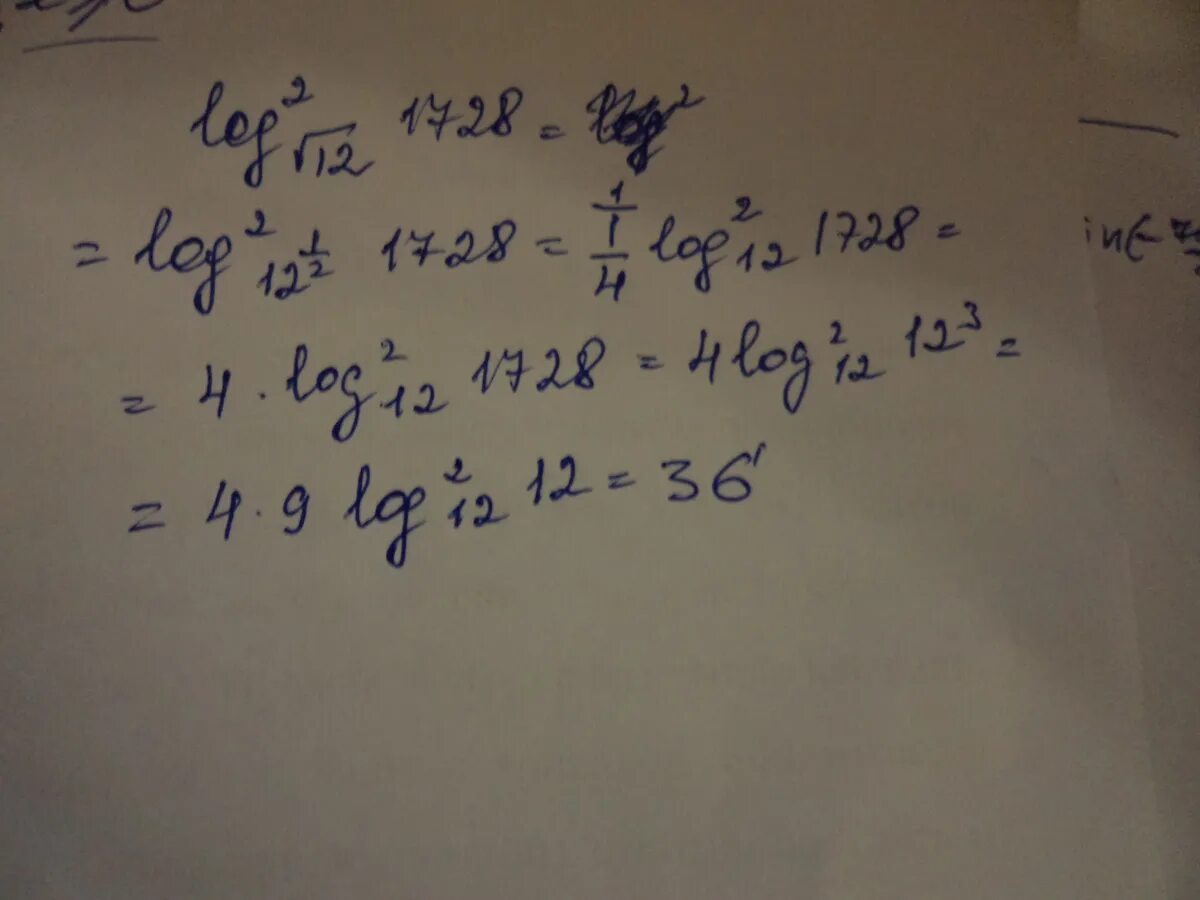 log²_√12 1728 =
= log²_12^(1/2) 1728 = 1/(1/4) log²_12 1728 =
= 4 · log²_12 1728 = 4 log²_12 12³ =
= 4 · 9 log²_12 12 = 36